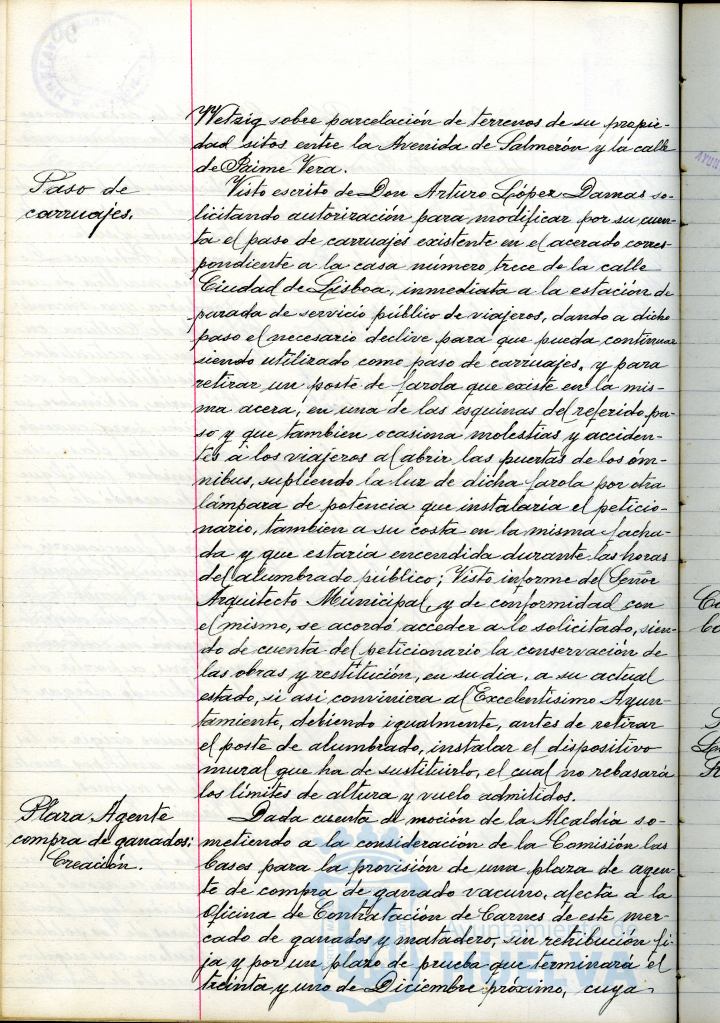 Wetzig sobre parcelación de terrenos de su propie-
dad sitos entre la Avenida de Salmerón y la calle
de Jaime Vera.
Paso de
carruajes.
Visto escrito de Don Arturo López Damas so-
licitando autorización para modificar por su cuen-
ta el paso de carruajes existente en el acerado corres-
pondiente a la casa número trece de la calle
Ciudad de Lisboa, inmediata a la estación de
parada de servicio público de viajeros, dando a dicho
paso el necesario declive para que pueda continuar
siendo utilizado como paso de carruajes, y para
retirar un poste de farola que existe en la mis-
ma acera, en una de las esquinas del referido pa-
so y que tambien ocasiona molestias y acciden-
tes a los viajeros al abrir las puertas de los óm-
nibus, supliendo la luz de dicha farola por otra
lámpara de potencia que instalaría el peticio-
nario, tambien a su costa en la misma facha-
da y que estaria encendida durante las horas
del alumbrado público; Visto informe del Señor
Arquitecto Municipal, y de conformidad con
el mismo, se acordó acceder a lo solicitado, sien-
do de cuenta del peticionario la conservación de
las obras y restitución, en su dia, a su actual
estado, si asi conviniera al Excelentísimo Ayun-
tamiento, debiendo igualmente, antes de retirar
el poste de alumbrado, instalar el dispositivo
mural que ha de sustituirlo, el cual no rebasará
los límites de altura y vuelo admitidos.
Plaza Agente
compra de ganados:
Creación.
Dada cuenta de moción de la Alcaldía so-
metiendo a la consideración de la Comisión las
bases para la provisión de una plaza de agen-
te de compra de ganado vacuno, afecta a la
Oficina de Contratación de Carnes de este mer-
cado de ganados y matadero, sin retribución fi-
ja y por un plazo de prueba que terminará el
treinta y uno de Diciembre próximo, cuya
Ayuntamiento de